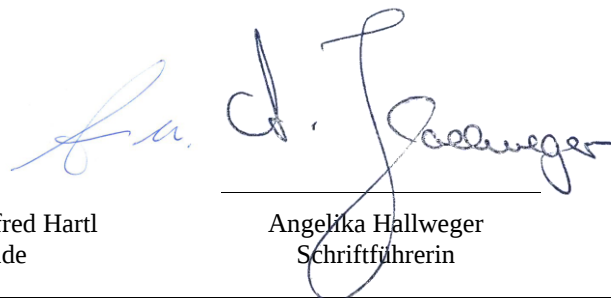 A. Hallweger
fred Hartl
Angelika Hallweger
de
Schriftführerin